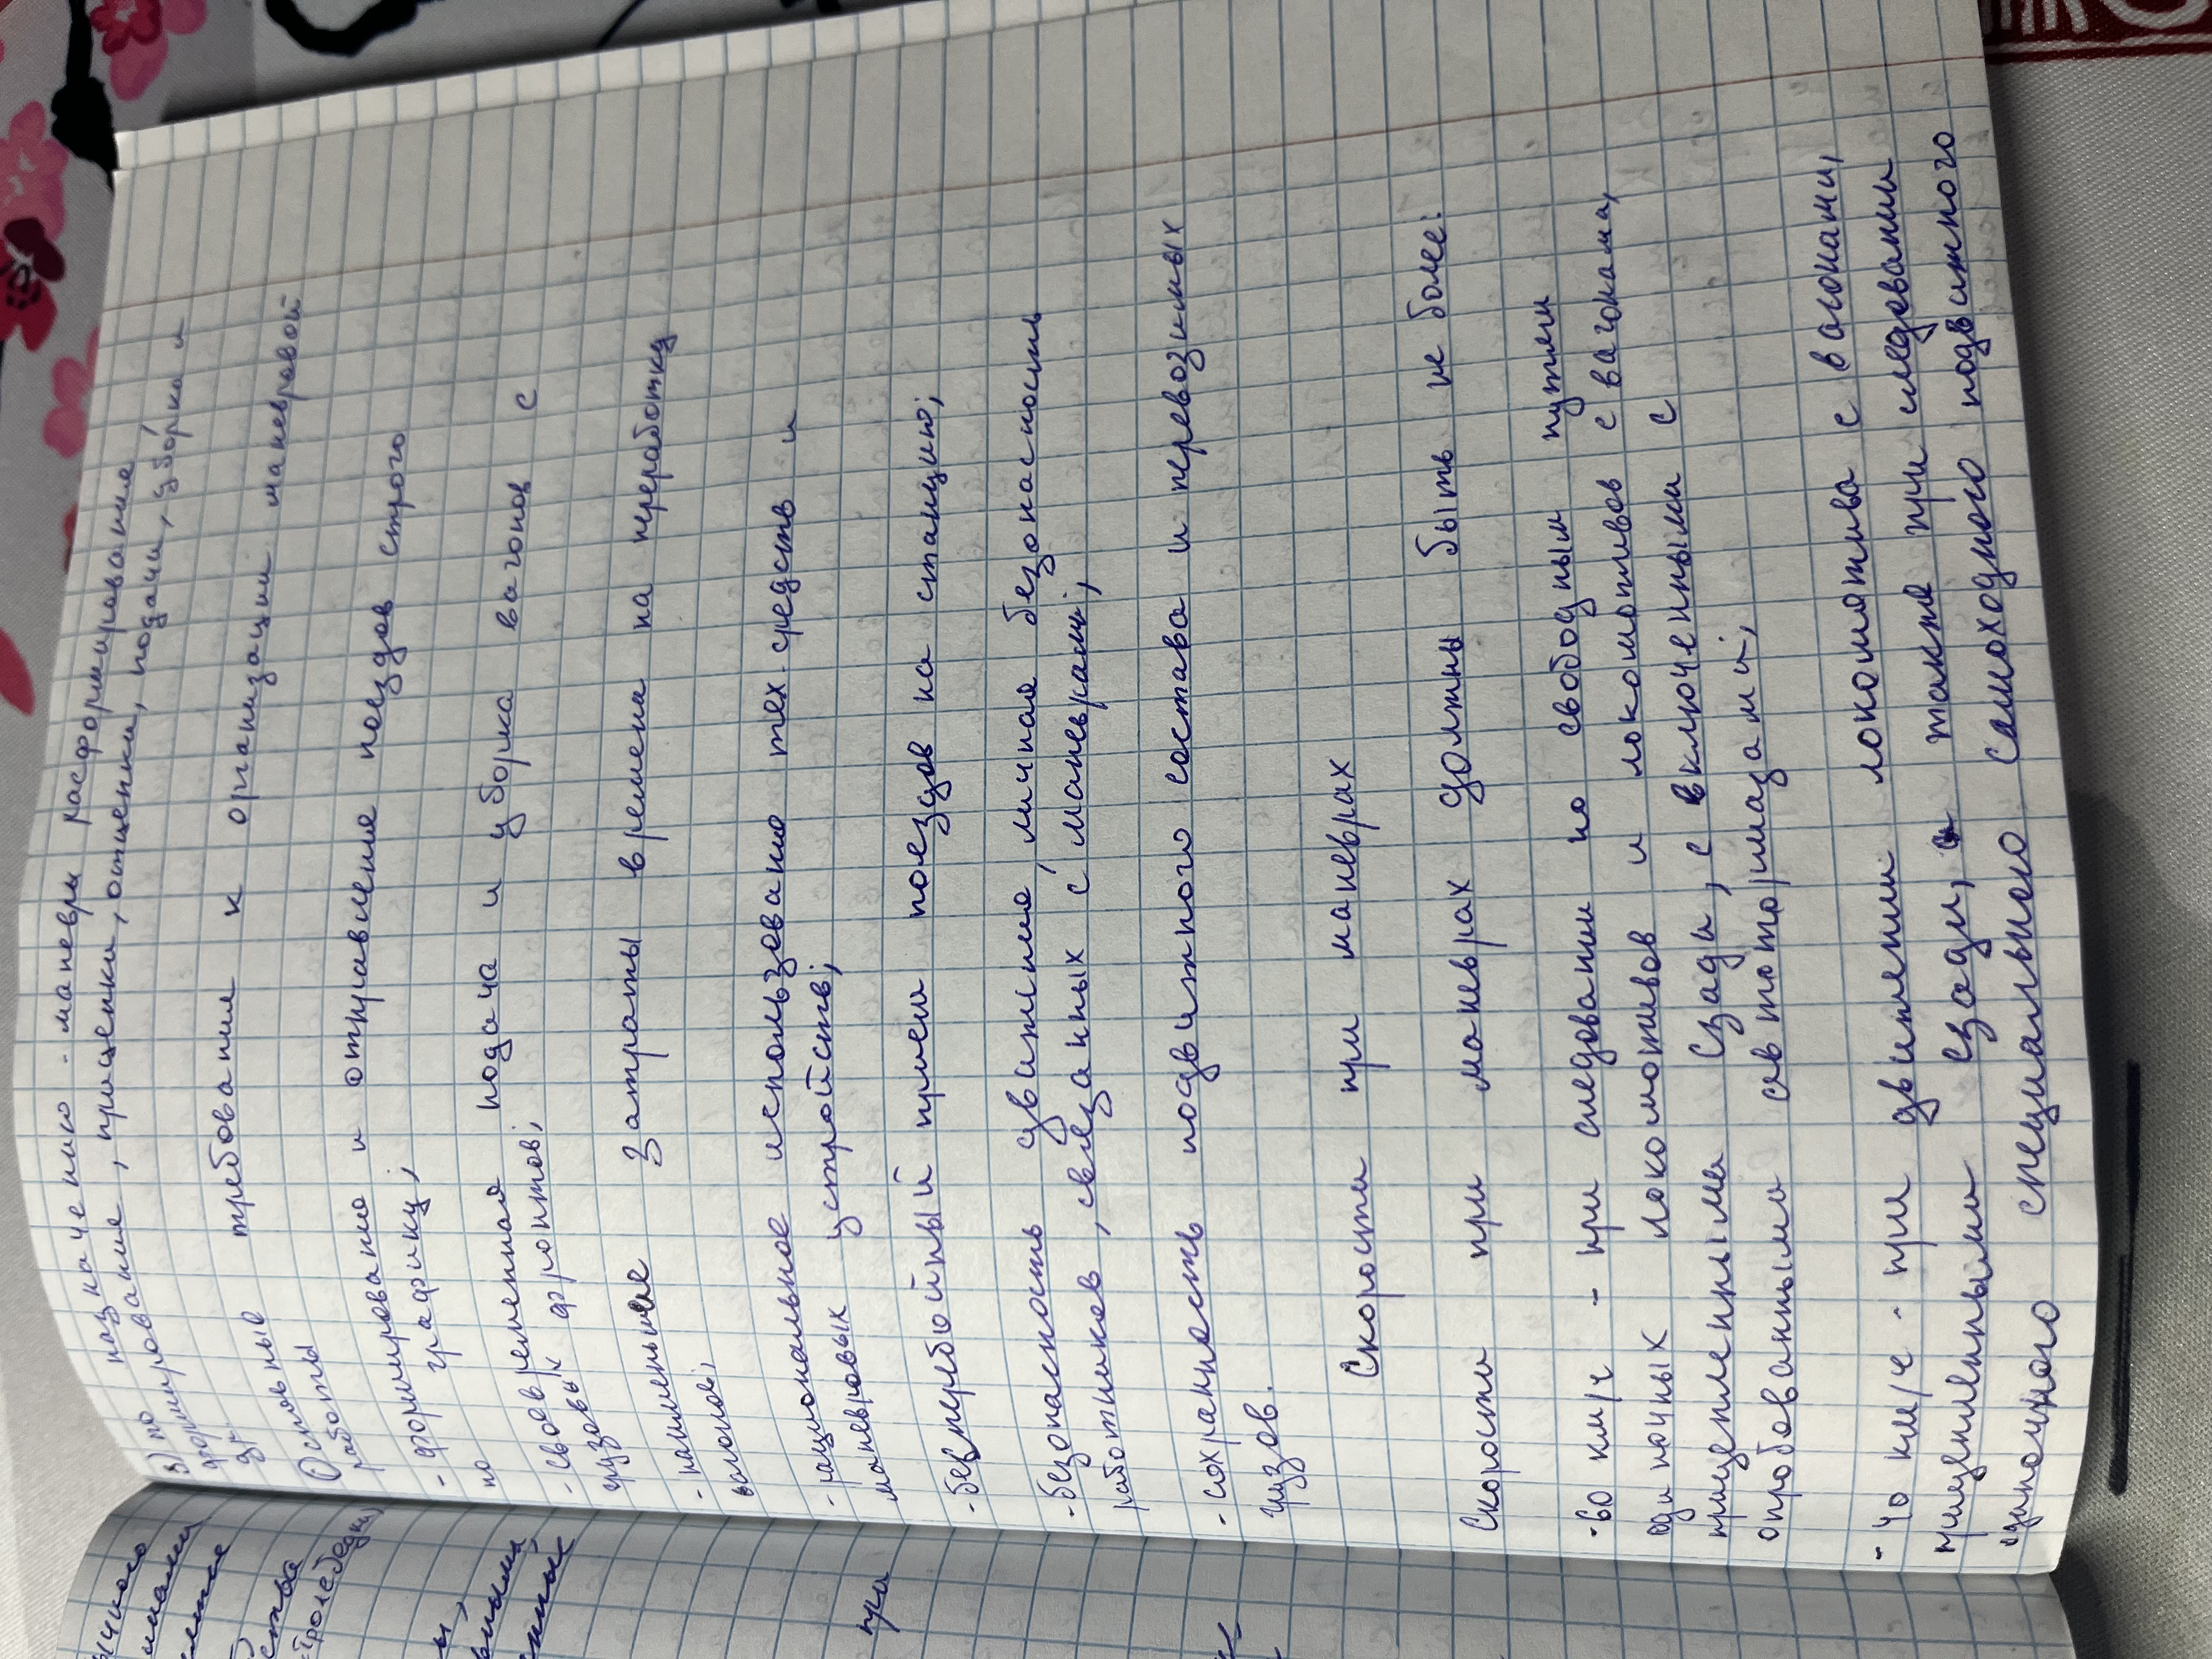 3) по назначению - маневры расформирование,
формирование, прицепки, отцепки, подачи, уборки и
др.
Основные требования к организации маневровой
работы
- формированию и отправление поездов строго
по графику;
- своевременная подача и уборка вагонов с
грузовых фронтов;
- наименьшие затраты времена на переработку
вагонов;
- рациональное использование тех. средств и
маневровых устройств;
- бесперебойный прием поездов на станцию;
- безопасность движение, личная безопасность
работников, связанных с маневрами;
- сохранность подвижного состава и перевозимых
грузов.
Скорости при маневрах
Скорости при маневрах должны быть не более:
- 60 км/ч - при следовании по свободным путям
одиночных локомотивов и локомотивов с вагонами,
прицепленными сзади, с включенными с
опробованными автотормазами;
- 40 км/ч - при движении локомотива с вагонами,
прицепленными сзади, а также при следовании
одиночного специального самоходного подвижного
ычного
ства
при